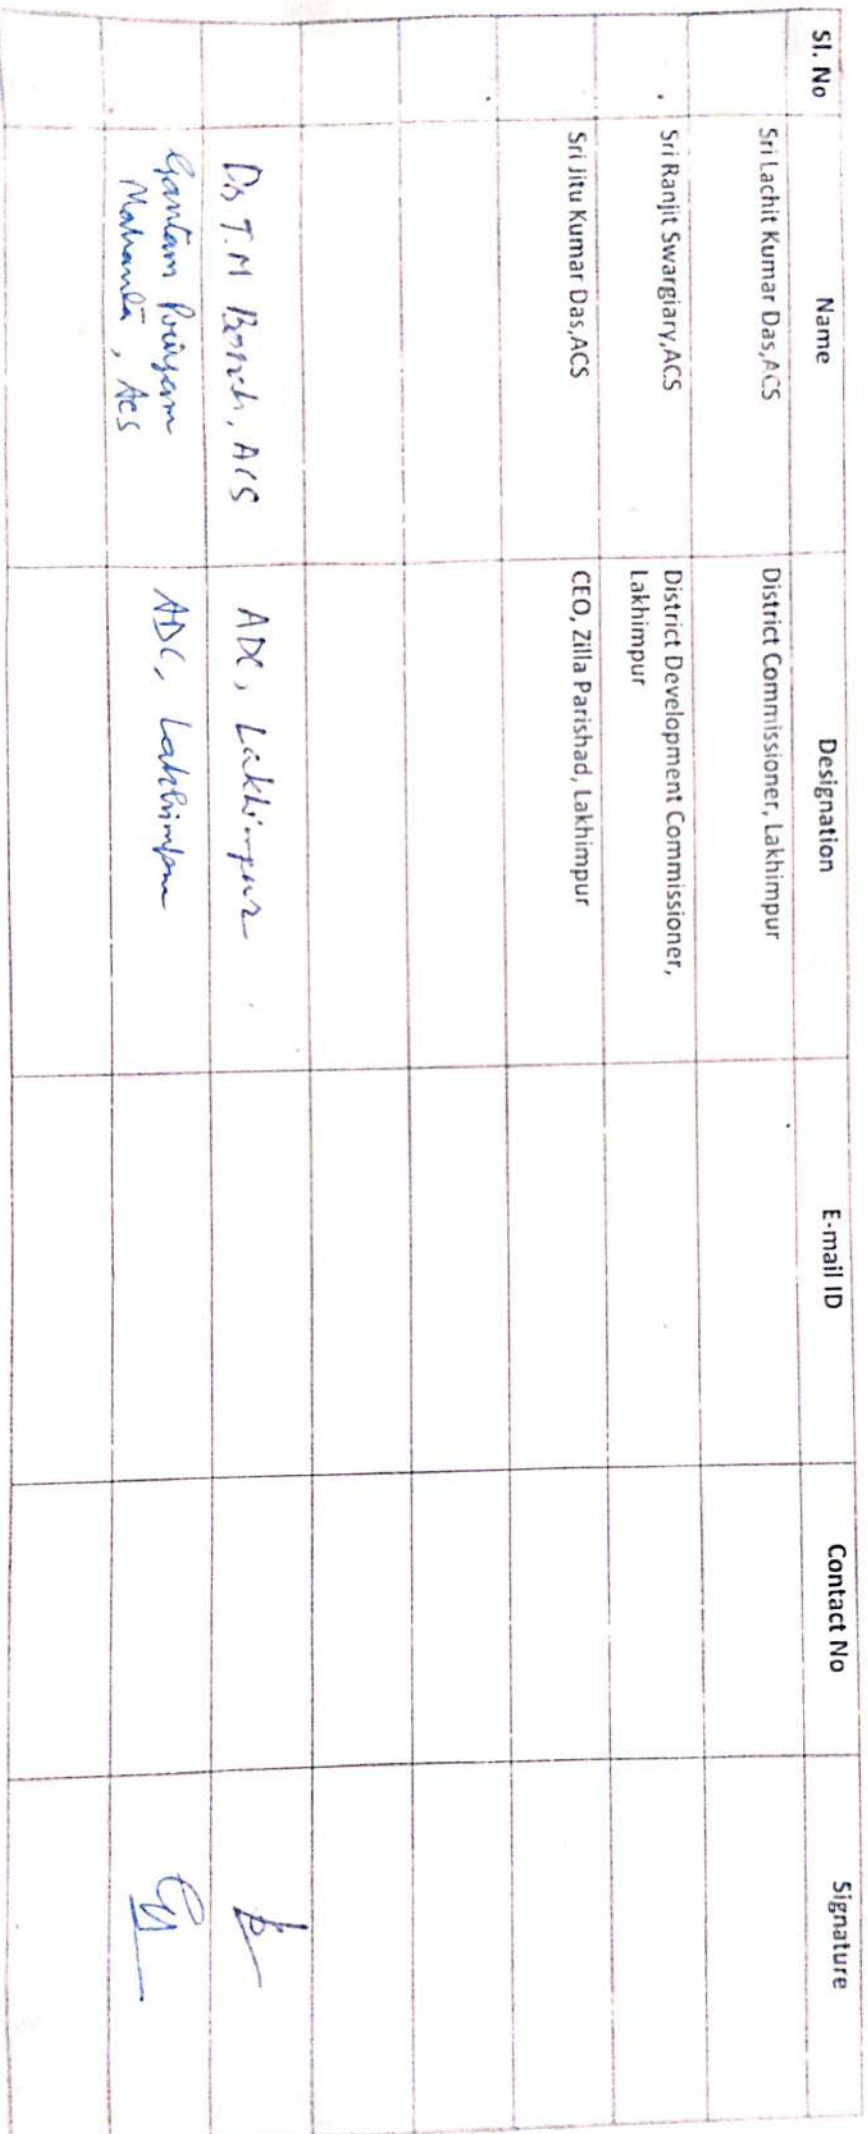 Sl. No Name Designation E-mail ID Contact No Signature
Sri Lachit Kumar Das,ACS District Commissioner, Lakhimpur
Sri Ranjit Swargiary,ACS District Development Commissioner,
Lakhimpur
Sri Jitu Kumar Das,ACS CEO, Zilla Parishad, Lakhimpur
T.M , ACS ADC, Lakhimpur
Gautam Priyam ADC, Lakhimpur
Mahanta, ACS